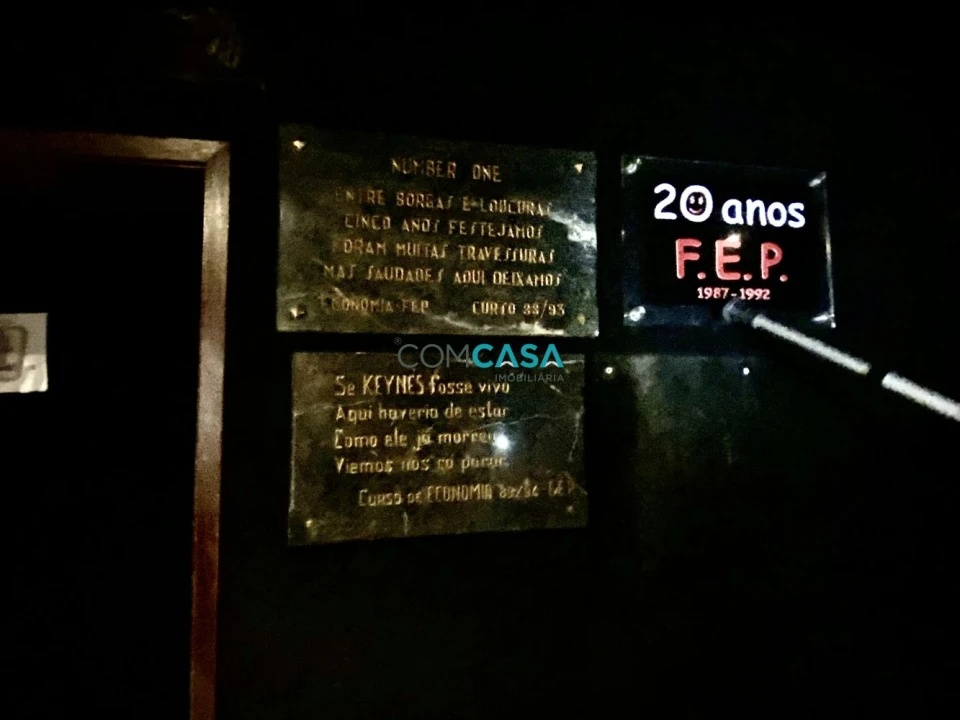 NUMBER ONE
ENTRE BORGAS E LOUCURAS
CINCO ANOS FESTEJAMOS
FORAM MUITAS TRAVESSURAS
MAS SAUDADES AQUI DEIXAMOS
ECONOMIA-FEP CURSO 88/93
20 anos
F.E.P.
1987-1992
COMCASA
IMOBILIÁRIA
Se KEYNES fosse vivo
Aqui haveria de estar
Como ele já morreu
Viemos nós cá parar
CURSO DE ECONOMIA